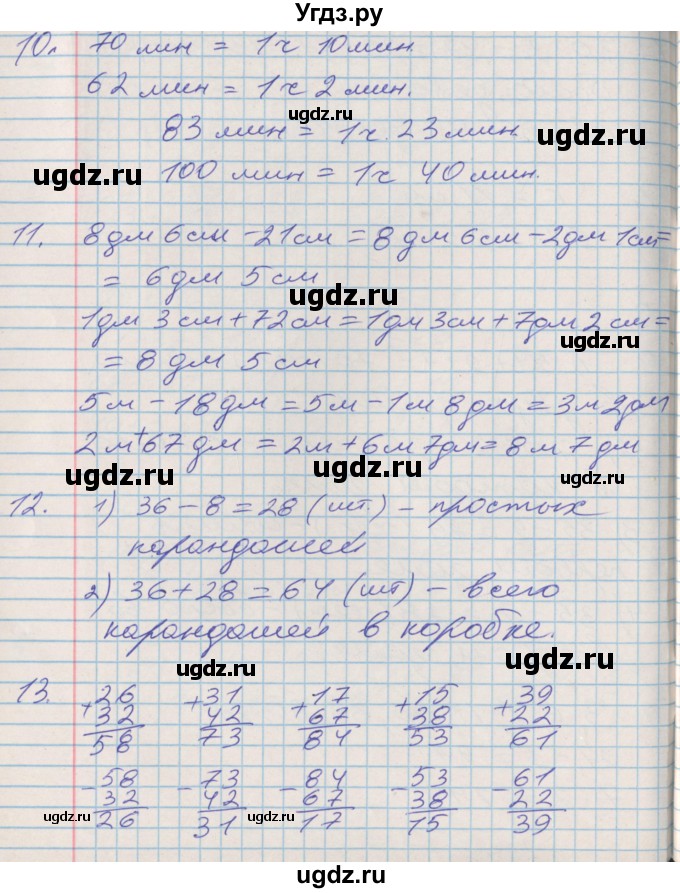 Угдз.ру
10. 70 мин = 1 ч 10 мин.
62 мин = 1 ч 2 мин.
ugdz.ru
83 мин = 1 ч. 23 мин.
ugdz.ru
ugdz.ru
100 мин = 1 ч 40 мин.
11. 8 дм 6 см - 21 см = 8 дм 6 см - 2 дм 1 см =
= 6 дм 5 см
ugdz.ru
1 дм 3 см + 72 см = 1 дм 3 см + 7 дм 2 см =
ugdz.ru
= 8 дм 5 см
5 м - 18 дм = 5 м - 1 м 8 дм = 3 м 2 дм
2 м + 67 дм = 2 м + 6 м 7 дм = 8 м 7 дм
ugdz.ru
ugdz.ru
12. 1) 36 - 8 = 28 (шт.) - простых
карандашей
ugdz.ru
2) 36 + 28 = 64 (шт) - всего
карандашей в коробке.
ugdz.ru
ugdz.ru
13. +26 +31 +17 +15 +39
32 42 67 38 22
58 73 84 53 61
ugdz.ru
ugdz.ru
-58 -73 -84 -53 -61
32 42 67 38 22
26 31 17 15 39
ugdz.ru
ugdz.ru
ugdz.ru
ugdz.ru